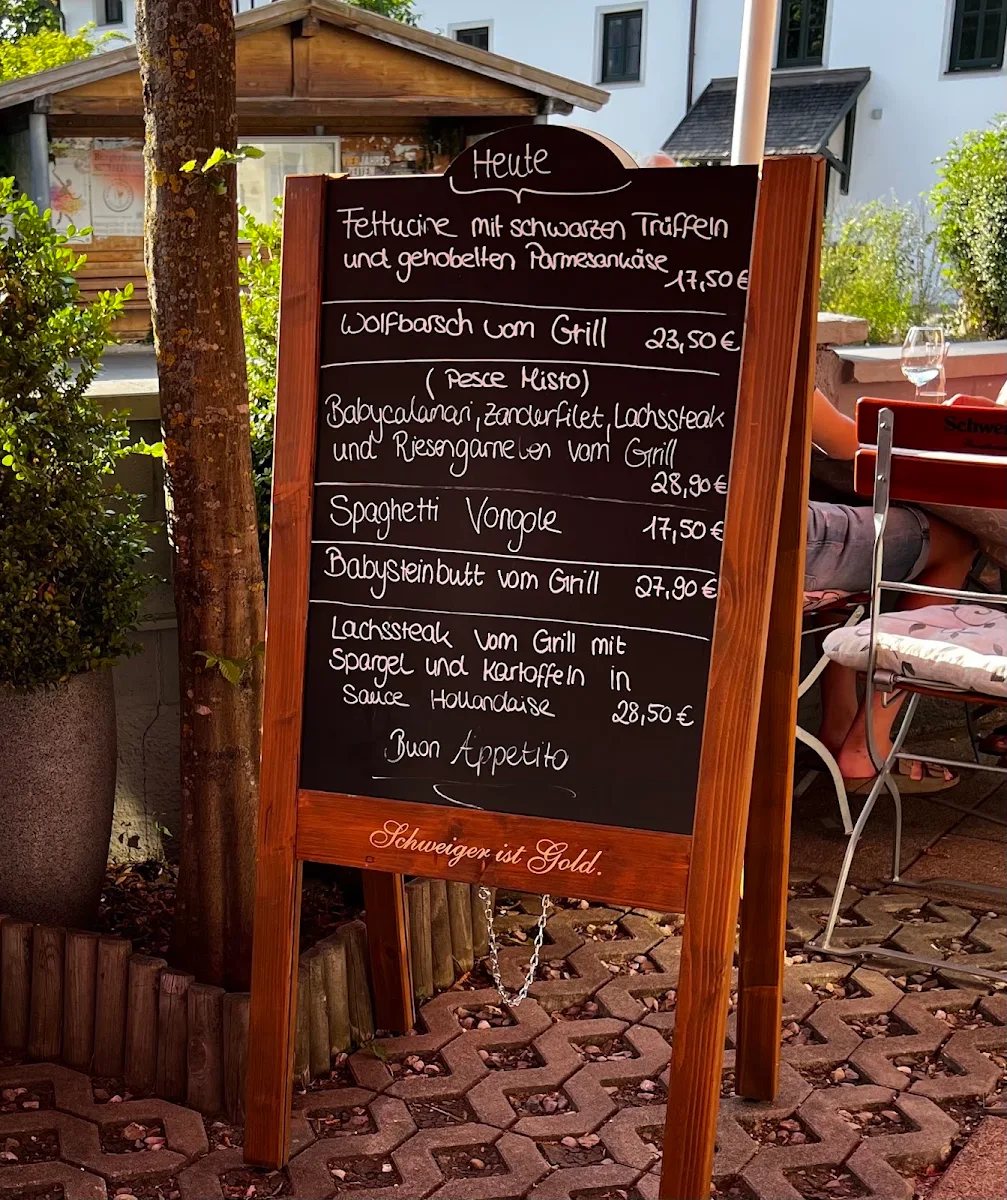 Heute
Fettucine mit schwarzen Trüffeln
und gehobelten Parmesankäse
17,50€
Wolfbarsch vom Grill 23,50€
(Pesce Misto)
Babycalamari, Zanderfilet, Lachssteak
und Riesengarnelen vom Grill
28,90€
Spaghetti Vongole 17,50€
Babysteinbutt vom Grill 27,90€
Lachssteak vom Grill mit
Spargel und Kartoffeln in
Sauce Hollandaise 28,50€
Buon Appetito
Schweiger ist Gold.